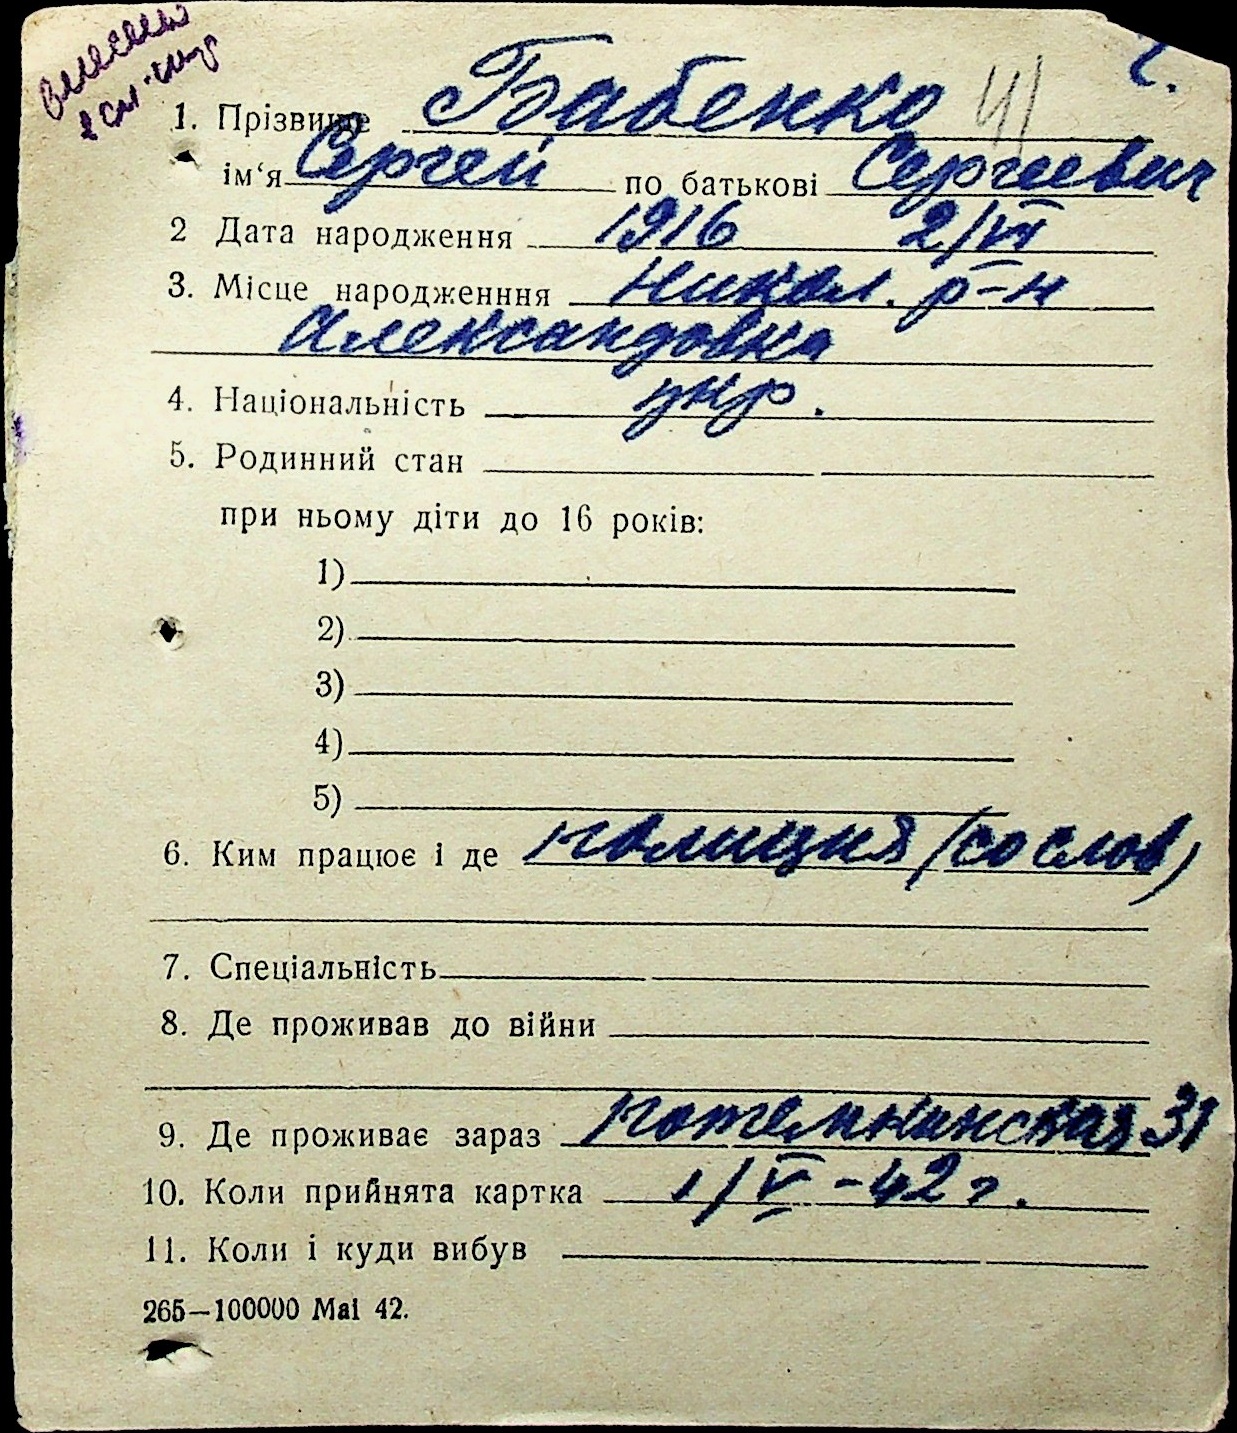 1. Прізвище Бабенко 41
ім‘я Сергей по батькові Сергеевич
2 Дата народження 1916 2/VI
3. Місце народженння Никол. р-н
Александовка
4. Національність укр.
5. Родинний стан
при ньому діти до 16 років:
1)
2)
3)
4)
5)
6. Ким працює і де полиция (со слов)
7. Спеціальність
8. Де проживав до війни
9. Де проживає зараз потемкинская 31
10. Коли прийнята картка 1/V-42 г.
11. Коли і куди вибув
265—100000 Mai 42.